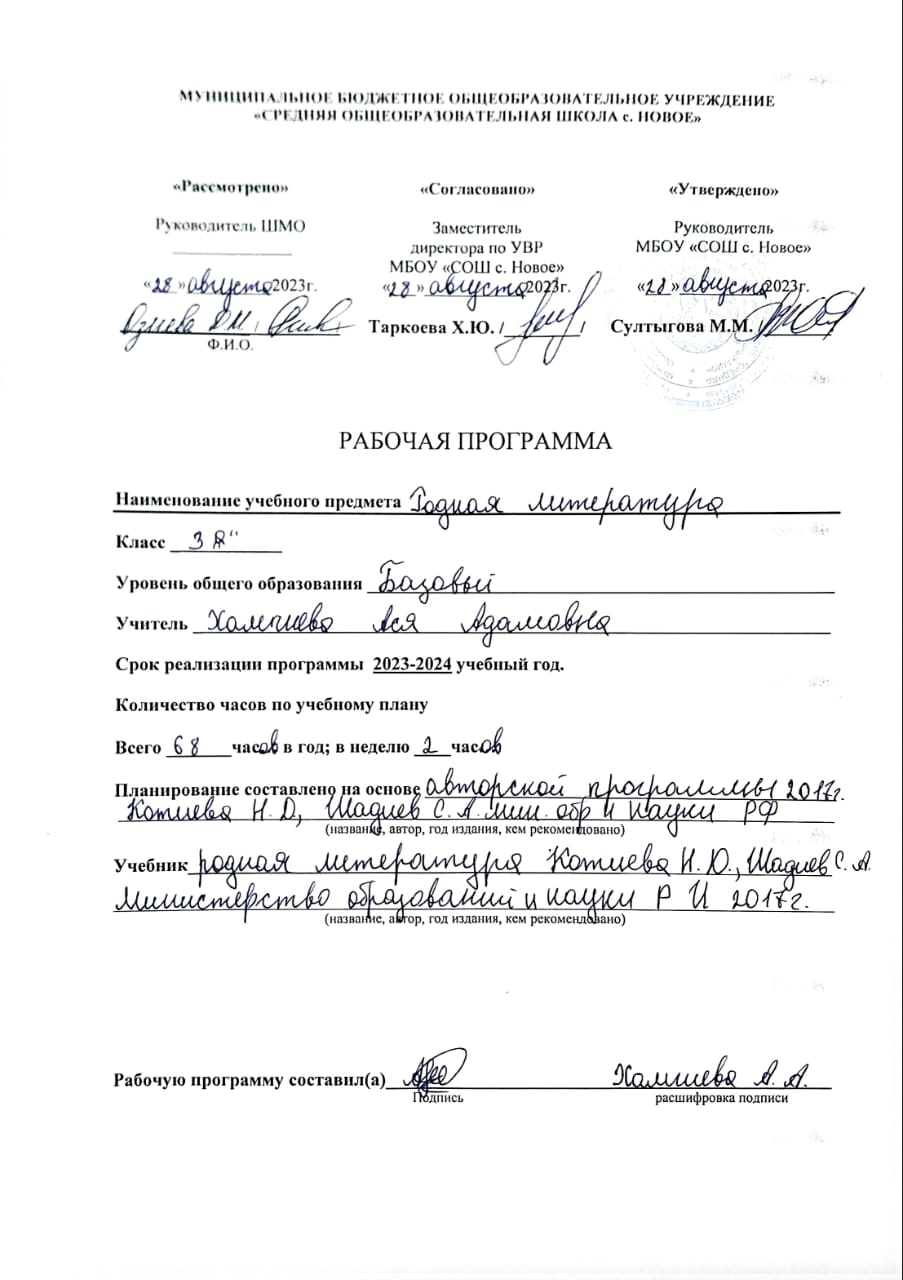 МУНИЦИПАЛЬНОЕ БЮДЖЕТНОЕ ОБЩЕОБРАЗОВАТЕЛЬНОЕ УЧРЕЖДЕНИЕ
«СРЕДНЯЯ ОБЩЕОБРАЗОВАТЕЛЬНАЯ ШКОЛА с. НОВОЕ»
«Рассмотрено»
Руководитель ШМО
«28 » августа 2023г.
Ф.И.О.
«Согласовано»
Заместитель
директора по УВР
МБОУ «СОШ с. Новое»
«28 » августа 2023г.
Таркоева Х.Ю. / /
«Утверждено»
Руководитель
МБОУ «СОШ с. Новое»
«28 » августа 2023г.
Султыгова М.М.
РАБОЧАЯ ПРОГРАММА
Наименование учебного предмета Родная литература
Класс 3
Уровень общего образования Базовый
Учитель Хамчиева Ася Адамовна
Срок реализации программы 2023-2024 учебный год.
Количество часов по учебному плану
Всего 68 часов в год; в неделю 2 часов
Планирование составлено на основе авторской программы 2017г.
Котиева Н. Д, Шадиев С. А. мин. обр и науки РФ
(название, автор, год издания, кем рекомендовано)
Учебник родная литература Котиева И. Ю., Шадиев С. А
Министерство образований и науки Р И 2017г.
(название, автор, год издания, кем рекомендовано)
Рабочую программу составил(а) Хамчиева А. А.
Подпись расшифровка подписи